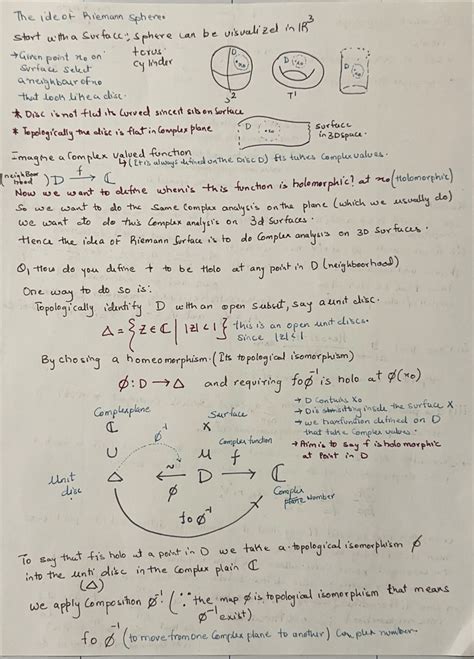 The idea of Riemann Sphere.
Start with a Surface; sphere can be visualized in IR³
torus
cylinder
→ Given point x₀ on
Surface select
a neighbour of x₀
that look like a disc.
D
x₀
D
x₀
D
x₀
S²
T¹
* Disc is not flat its curved since it sits on Surface
* Topologically the disc is flat in Complex plane
D
x₀
Surface
in 3D space.
Imagine a Complex valued function
↳ (It is always defined on the Disc D) f is takes Complex values.
(neighbour hood) D —f→ ℂ
Now we want to define when is this function is holomorphic? at x₀ (Holomorphic)
So we want to do the same Complex analysis on the plane (which we usually do)
we want to do this Complex analysis on 3d Surfaces.
Hence the idea of Riemann Surface is to do Complex analysis on 3D Surfaces.
Q, How do you define f to be Holo at any point in D (neighbourhood)
One way to do so is:
Topologically identify D with an open subset, say a unit disc.
Δ = {z ∈ ℂ | |z| < 1} this is an open unit discs.
since |z| < 1
By chosing a homeomorphism. (Its topological isomorphism)
ϕ: D → Δ and requiring foϕ⁻¹ is holo at ϕ(x₀)
→ D Contains x₀
→ D is sitting inside the surface X
→ we have function defined on D
that take Complex values.
→ Aim is to say f is holomorphic
at Point in D
Complex plane
ℂ
∪
Unit
disc
Δ
ϕ⁻¹
~
ϕ
Surface
X
D
Complex function
f
ℂ
Complex
Number
foϕ⁻¹
To say that f is holo at a point in D we take a topological isomorphism ϕ
into the unit disc in the Complex plain ℂ
(Δ)
we apply Composition ϕ⁻¹ (∵ the map ϕ is topological isomorphism that means
ϕ⁻¹ exist)
foϕ⁻¹ (to move from one Complex plane to another) Complex number.